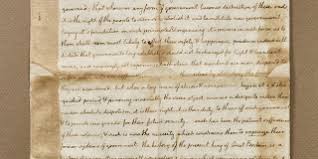 governed; that whenever any form of government becomes destructive of these ends,
it is the right of the people to alter or to abolish it, and to institute new government
laying it's foundation on such principles & organising it's powers in such form as to
them shall seem most likely to effect their safety & happiness. prudence indeed will
dictate that governments long established should not be changed for light & transient
causes: and accordingly all experience hath shewn that mankind are more disposed to
they are accustomed. but when a long train of abuses & usurpations begun at a dis
period & pursuing invariably the same object, evinces a design to
under absolute despotism, it is their right, it is their duty, to throw off such government
& to provide new guards for their future security. such has been the patient sufferance
of these colonies & such is now the necessity which constrains them to expunge their
former systems of government. the history of the present king of Great Britain is a